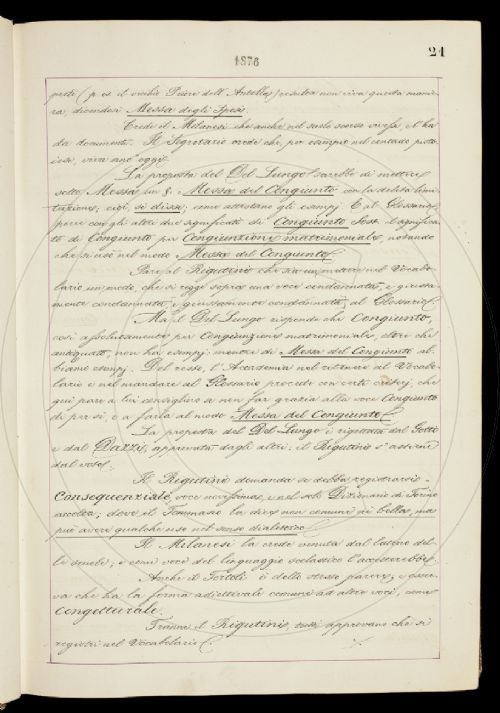 1876
21
petti (p. es. il vecchio Priore dell'Antella) resulta non viva questa manie-
ra, dicendosi Messa degli Sposi.
Crede il Milanesi che anche nel secolo scorso vivesse, e l'ha
da documenti. Il Segretario crede che, per esempio nel contado pisto-
iese, viva anc'oggi.
La proposta del Del Lungo sarebbe di mettere
sotto Messa un §. Messa del Congiunto con la debita limi-
tazione, cioè, si disse; come attestano gli esempj. E al Glossario,
porre con gli altri due significati di Congiunto Sost. il significa-
to di Congiunto per Congiunzione matrimoniale, notando
che si usò nel modo Messa del Congiunto.
Pare al Rigutini che sia un mettere nel Vocabo-
lario un modo, che si regge sopra una voce condannata, e giusta-
mente condannata, e giustamente condannata, al Glossario.
Ma il Del Lungo risponde che Congiunto,
così assolutamente per Congiunzione matrimoniale, oltre che
antiquato, non ha esempj: mentre di Messa del Congiunto ab-
biamo esempj. Del resto, l'Accademia nel ritenere al Vocabo-
lario e nel mandare al Glossario procede con certi criterj, che
qui pare a lui consiglino a non far grazia alla voce Congiunto
di per sè, e a farla al modo Messa del Congiunto.
La proposta del Del Lungo è rigettata dal Gotti
e dal Dazzi, approvata dagli altri: il Rigutini s'astiene
dal voto.
Il Rigutini domanda se debba registrarsi
Consequenziale, voce nuovissima, e nel solo Dizionario di Torino
accolta, dove il Tommaseo la dice non comune nè bella, ma
può avere qualche uso nel senso dialettico.
Il Milanesi la crede venuta dal latino del-
le scuole, e come voce del linguaggio scolastico l'accetterebbe.
Anche il Tortoli è dello stesso parere, e osser-
va che ha la forma adiettivale comune ad altre voci, come
Congetturale.
Tranne il Rigutini, tutti approvano che si
registri nel Vocabolario.